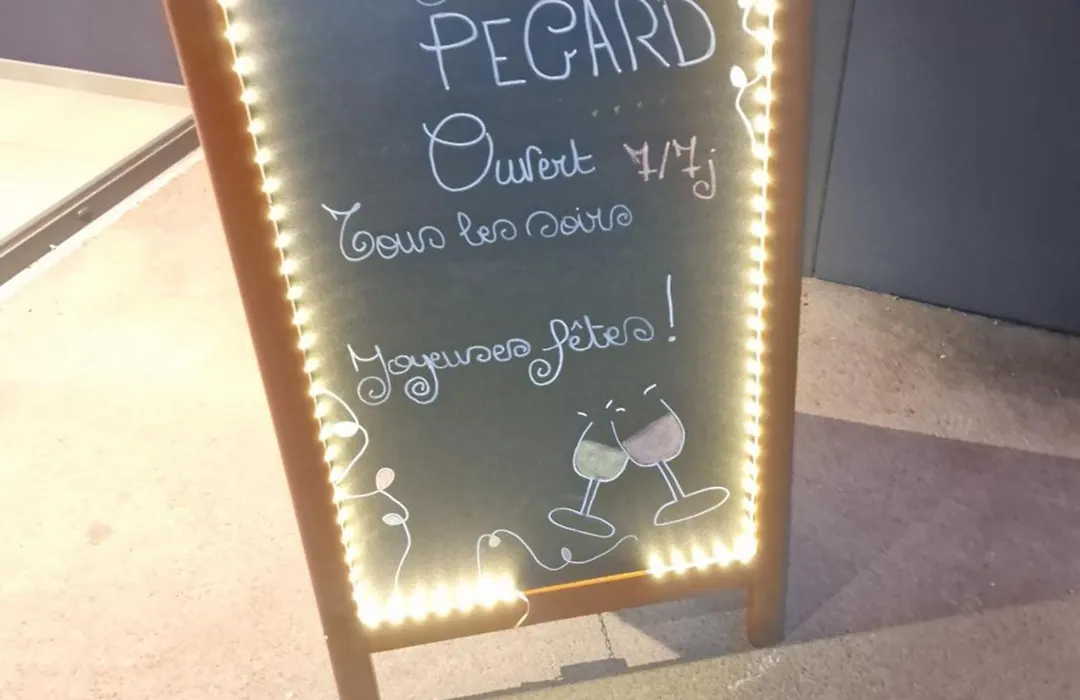 PEGARD
Ouvert 7/7j
Tous les soirs
Joyeuses fêtes !